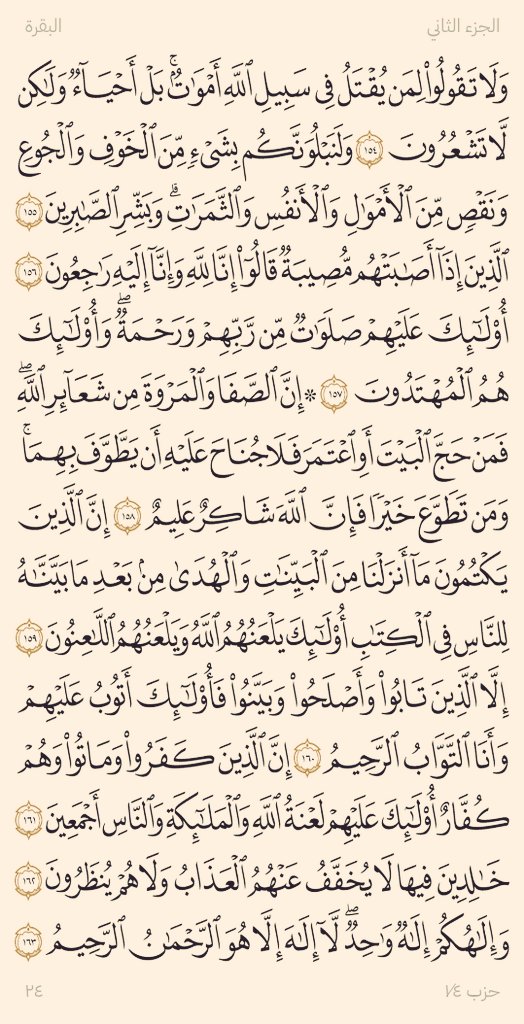 الجزء الثاني
البقرة
وَلَا تَقُولُوا۟ لِمَن يُقْتَلُ فِى سَبِيلِ ٱللَّهِ أَمْوَٰتٌۢ ۚ بَلْ أَحْيَآءٌ وَلَـٰكِن
لَّا تَشْعُرُونَ ١٥٤ وَلَنَبْلُوَنَّكُم بِشَىْءٍ مِّنَ ٱلْخَوْفِ وَٱلْجُوعِ
وَنَقْصٍ مِّنَ ٱلْأَمْوَٰلِ وَٱلْأَنفُسِ وَٱلثَّمَرَٰتِ ۗ وَبَشِّرِ ٱلصَّـٰبِرِينَ ١٥٥
ٱلَّذِينَ إِذَآ أَصَـٰبَتْهُم مُّصِيبَةٌ قَالُوٓا۟ إِنَّا لِلَّهِ وَإِنَّآ إِلَيْهِ رَٰجِعُونَ ١٥٦
أُو۟لَـٰٓئِكَ عَلَيْهِمْ صَلَوَٰتٌ مِّن رَّبِّهِمْ وَرَحْمَةٌ ۖ وَأُو۟لَـٰٓئِكَ
هُمُ ٱلْمُهْتَدُونَ ١٥٧ ۞ إِنَّ ٱلصَّفَا وَٱلْمَرْوَةَ مِن شَعَآئِرِ ٱللَّهِ ۖ
فَمَنْ حَجَّ ٱلْبَيْتَ أَوِ ٱعْتَمَرَ فَلَا جُنَاحَ عَلَيْهِ أَن يَطَّوَّفَ بِهِمَا ۚ
وَمَن تَطَوَّعَ خَيْرًا فَإِنَّ ٱللَّهَ شَاكِرٌ عَلِيمٌ ١٥٨ إِنَّ ٱلَّذِينَ
يَكْتُمُونَ مَآ أَنزَلْنَا مِنَ ٱلْبَيِّنَـٰتِ وَٱلْهُدَىٰ مِنۢ بَعْدِ مَا بَيَّنَّـٰهُ
لِلنَّاسِ فِى ٱلْكِتَـٰبِ أُو۟لَـٰٓئِكَ يَلْعَنُهُمُ ٱللَّهُ وَيَلْعَنُهُمُ ٱللَّـٰعِنُونَ ١٥٩
إِلَّا ٱلَّذِينَ تَابُوا۟ وَأَصْلَحُوا۟ وَبَيَّنُوا۟ فَأُو۟لَـٰٓئِكَ أَتُوبُ عَلَيْهِمْ
وَأَنَا ٱلتَّوَّابُ ٱلرَّحِيمُ ١٦٠ إِنَّ ٱلَّذِينَ كَفَرُوا۟ وَمَاتُوا۟ وَهُمْ
كُفَّارٌ أُو۟لَـٰٓئِكَ عَلَيْهِمْ لَعْنَةُ ٱللَّهِ وَٱلْمَلَـٰٓئِكَةِ وَٱلنَّاسِ أَجْمَعِينَ ١٦١
خَـٰلِدِينَ فِيهَا لَا يُخَفَّفُ عَنْهُمُ ٱلْعَذَابُ وَلَا هُمْ يُنظَرُونَ ١٦٢
وَإِلَـٰهُكُمْ إِلَـٰهٌ وَٰحِدٌ ۖ لَّآ إِلَـٰهَ إِلَّا هُوَ ٱلرَّحْمَـٰنُ ٱلرَّحِيمُ ١٦٣
حزب ٧٤
٢٤